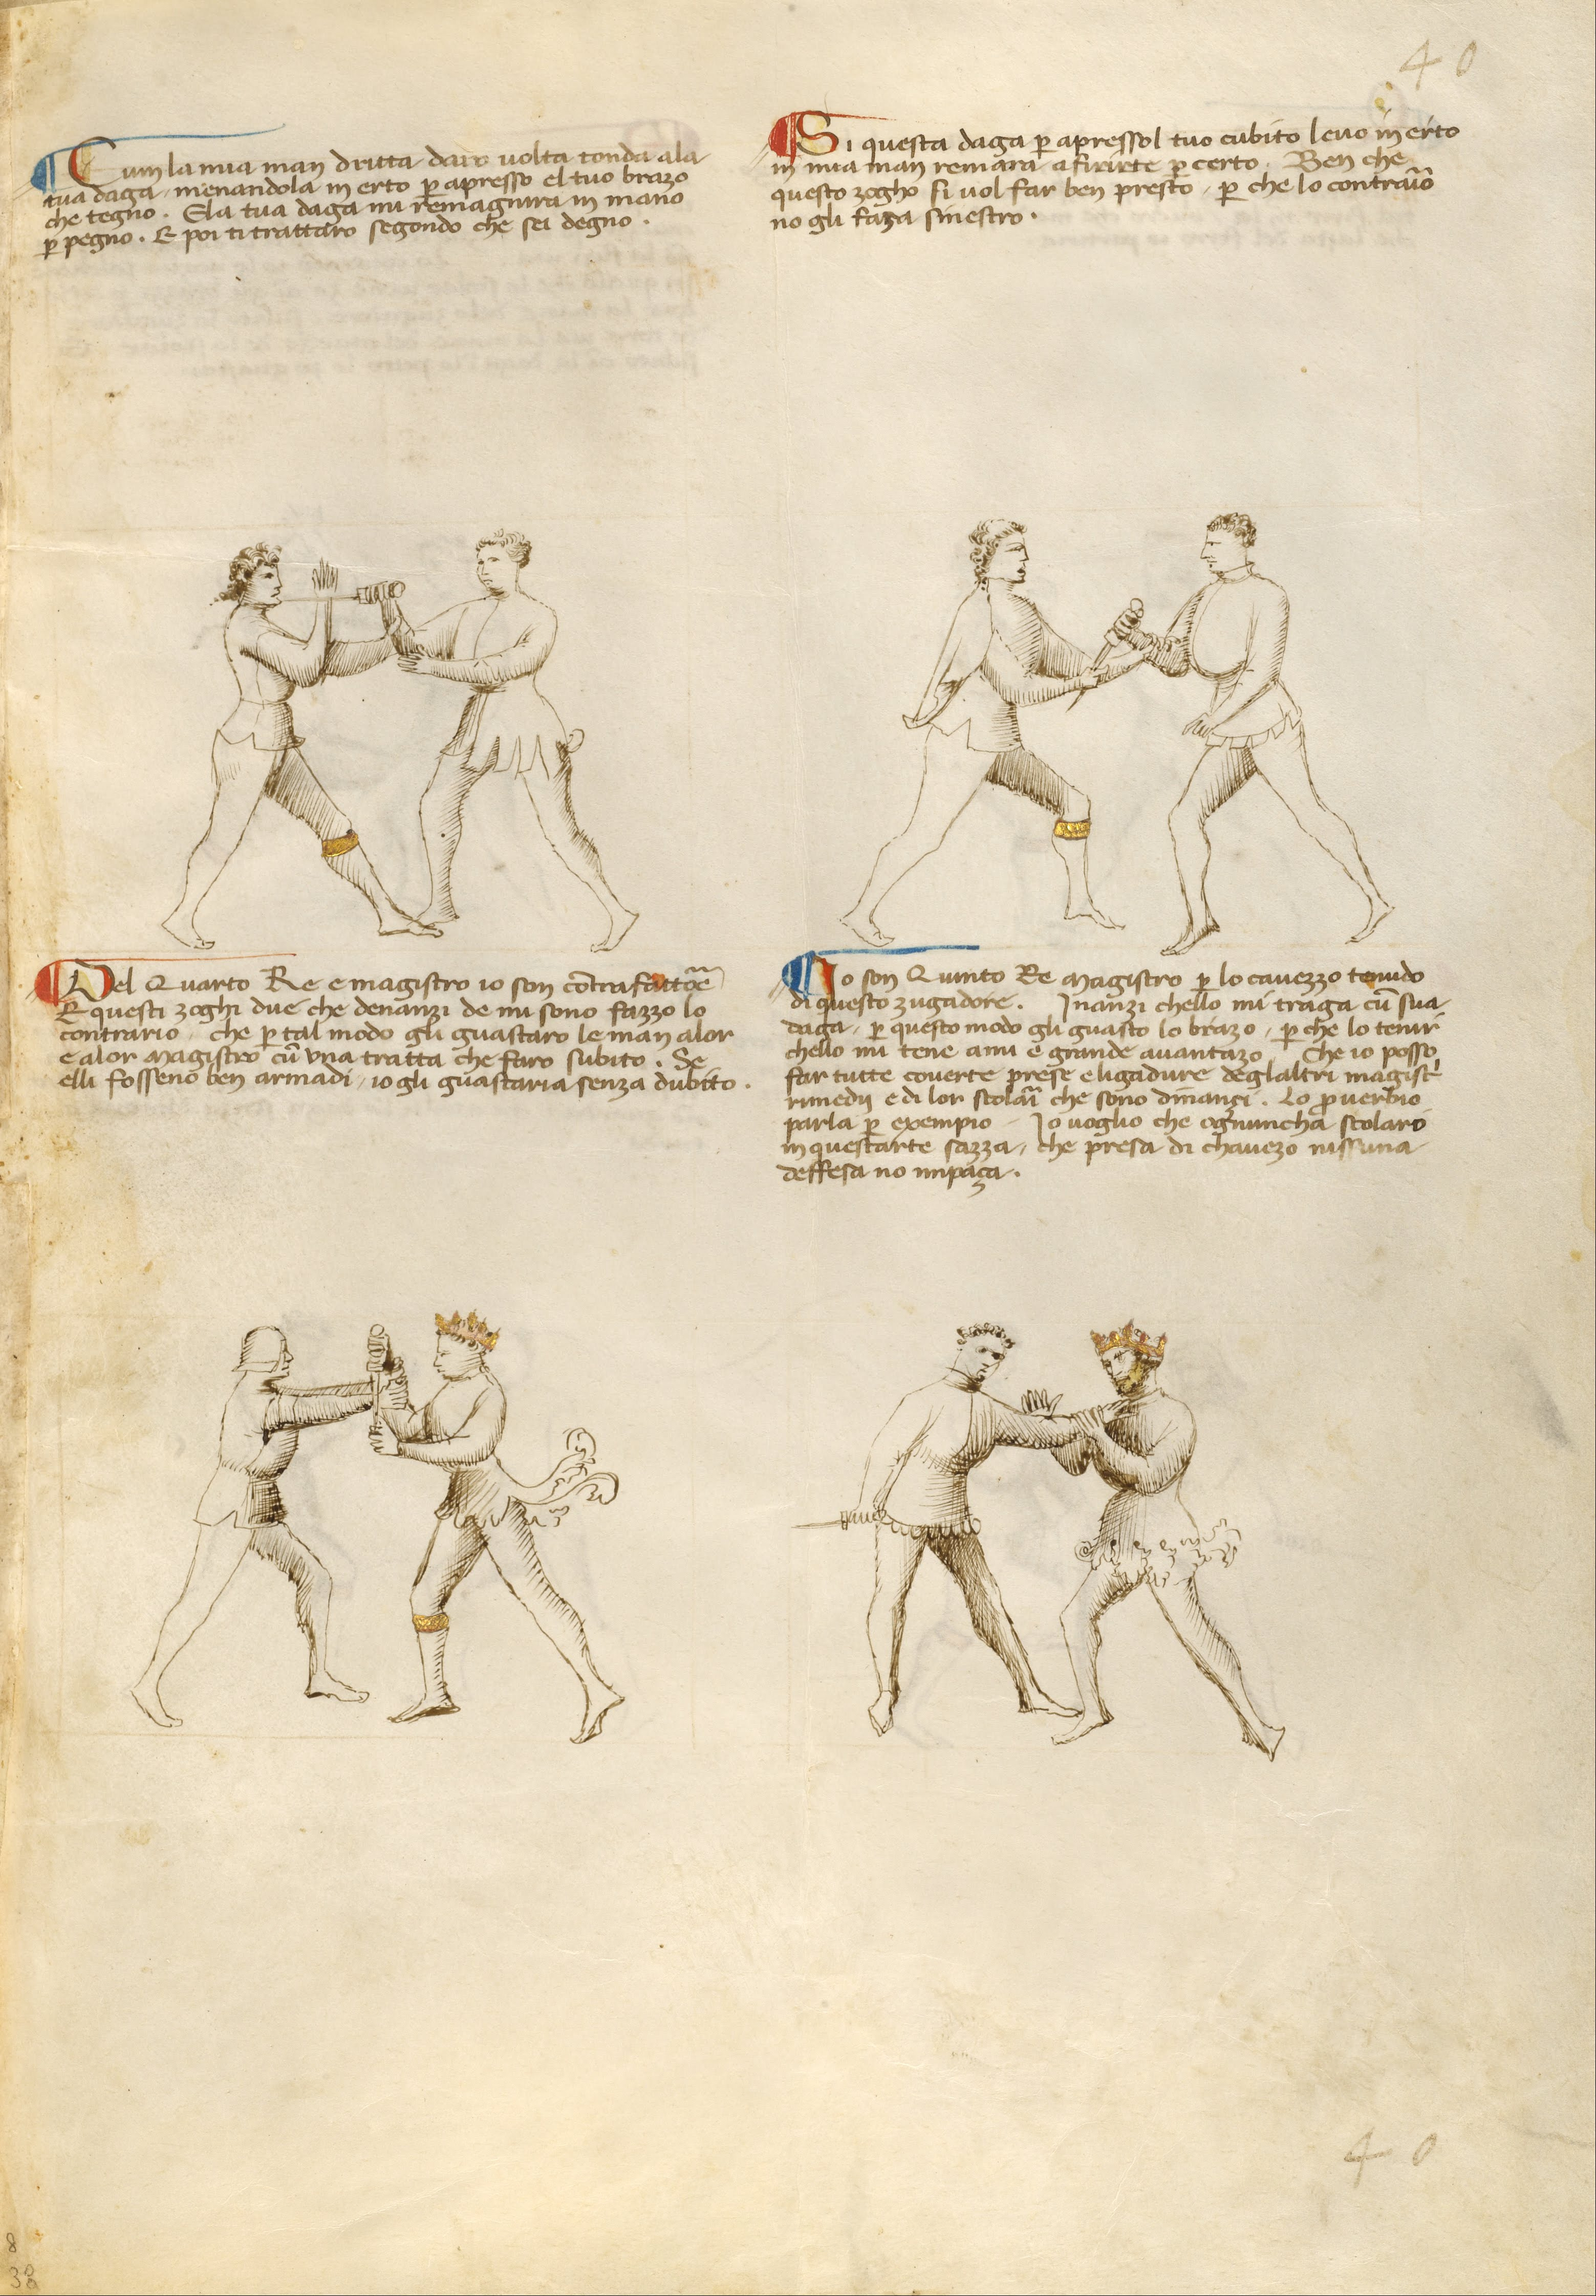 40
Cum la mia man dritta daro volta tonda a la
tua daga, menandola in erto p apresso el tuo brazo
che tegno. E la tua daga mi remagnira in mano
p pegno. E poi ti trattaro segondo che sei degno.
Si questa daga p apressol tuo cubito levo in erto
in mia man remara a firirte p certo. Ben che
questo zogho si vol far ben presto, p che lo contraio
no gli faza sinestro.
Del Quarto Re e magistro io son cōtrafattore
E questi zoghi due che denanzi de mi sono fazzo lo
contrario, che p tal modo gli guastaro le man a lor
e a lor magistro cū una tratta che faro subito. Se
elli fosseno ben armadi, io gli guastaria senza dubito.
Io son Quinto Re Magistro p lo cavezzo tenudo
di questo zugadore. Inanzi chello mi traga cū sua
daga, p questo modo gli guasto lo brazo, p che lo tenir
chello mi tene a mi e grande avantazo. Che io posso
far tutte coverte prese e ligadure deglaltri magist
rimedij e di lor scolari che sono dinanzi. Lo pverbio
parla p exempio. Io voglio che ognuncha scolaro
in questarte sazza, che presa di chavezo nissuna
deffesa no impaça.
40
8
38